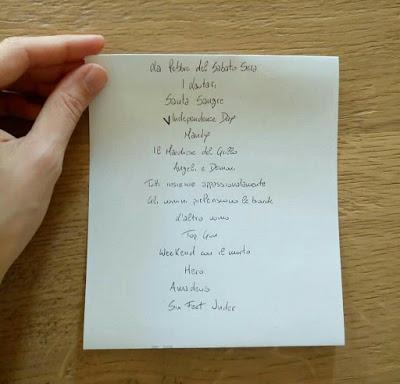 La Febbre del Sabato Sera
I Lautari
Santa Sangre
✓Independence Day
Mandy
Il Marchese del Grillo
Angeli e Demoni
Tutti insieme appassionatamente
Gli uomini preferiscono le bionde
L'altro uomo
Top Gun
Weekend con il morto
Hero
Amadeus
Six Feet Under